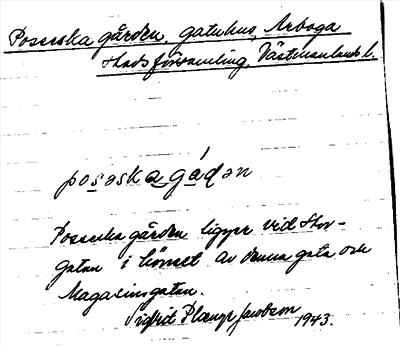 Posseska gården, gatuhus, Arboga
stadsförsamling, Västmanlands l.
posəska gɑ́dən
Posseska gården ligger vid Stor-
gatan i hörnet av denna gata och
Magasinsgatan.
Sigfrid Jacobson 1943.